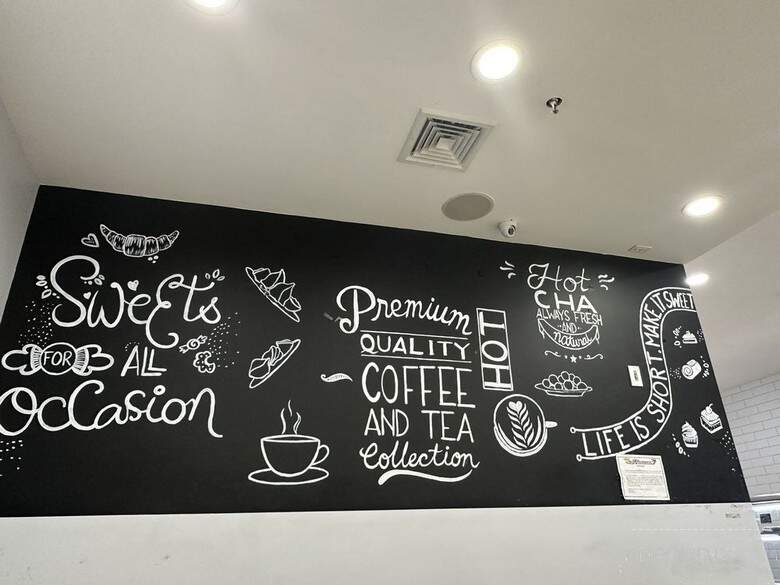 Sweets
FOR ALL
Occasion
Premium
QUALITY
COFFEE
AND TEA
Collection
HOT
Hot
CHA
ALWAYS FRESH
-AND-
natural
LIFE IS SHORT. MAKE IT SWEET